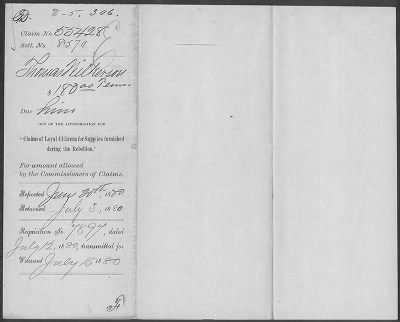 5-5. 306.
Claim No. 55428
Sett. No. 8570
Thomas Wilkerson
$ 180 as Tenn
Due him
OUT OF THE APPROPRIATION FOR
"Claims of Loyal Citizens for Supplies furnished
during the Rebellion."
For amount allowed
by the Commissioners of Claims.
Reported June 30th, 1880
Returned July 3, 1880.
Requisition No. 7897, dated
July 12, 1880, transmitted for
Warrant July 16 1880